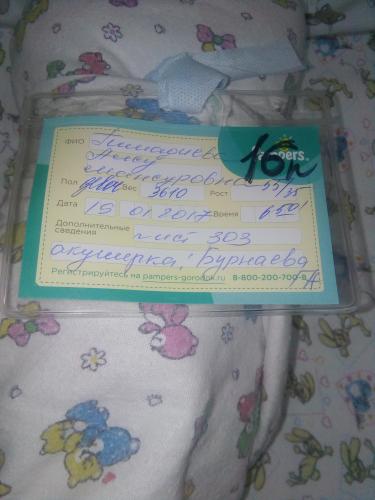 ФИО
Мансуровна
16 п
Pampers
Пол Вес 3610 Рост 55/35
Дата 19 01 2017 Время 6 50
Дополнительные
сведения
лист 303
акушерка: Бурнаева
Регистрируйтесь на pampers-gorodok.ru 8-800-200-700-8